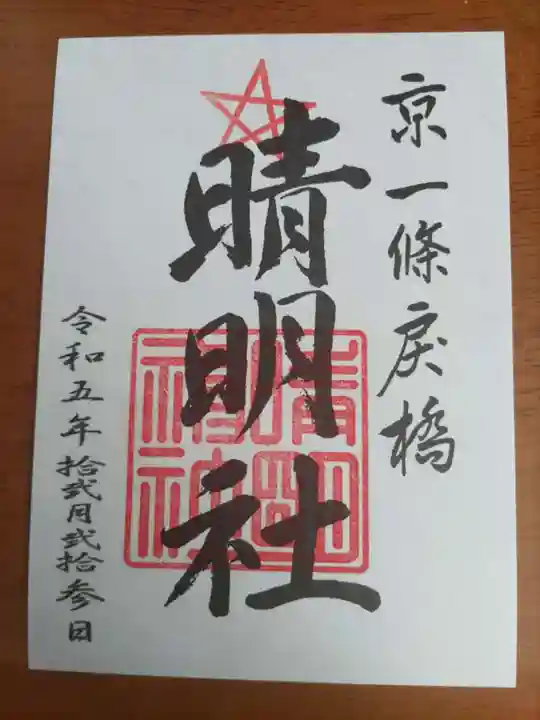 京一條戻橋
晴明社
晴明神社
令和五年拾弐月弐拾参日